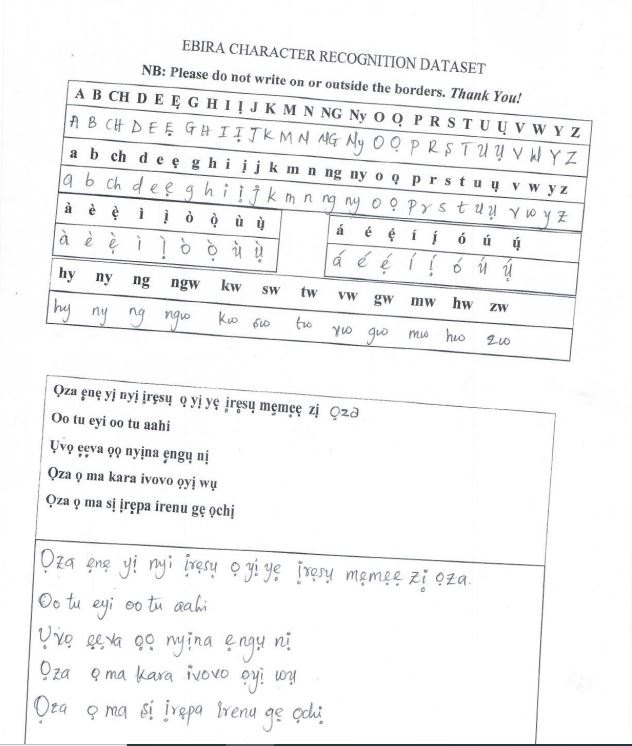 EBIRA CHARACTER RECOGNITION DATASET
NB: Please do not write on or outside the borders. Thank You!
A B CH D E Ẹ G H I Ị J K M N NG Ny O Ọ P R S T U Ụ V W Y Z
A B CH D E Ẹ G H I Ị J K M N NG Ny O Ọ P R S T U Ụ V W Y Z
a b ch d e ẹ g h i ị j k m n ng ny o ọ p r s t u ụ v w y z
a b ch d e ẹ g h i ị j k m n ng ny o ọ p r s t u ụ v w y z
à è ẹ̀ ì ị̀ ò ọ̀ ù ụ̀
á é ẹ́ í ị́ ó ú ụ́
à è ẹ̀ ì ị̀ ò ọ̀ ù ụ̀
á é ẹ́ í ị́ ó ú ụ́
hy ny ng ngw kw sw tw vw gw mw hw zw
hy ny ng ngw kw sw tw vw gw mw hw zw
Ọza ẹnẹ yị nyị ịrẹsụ ọ yị yẹ ịrẹsụ mẹmẹẹ zị ọza
Oo tu eyi oo tu aahi
Ụvọ ẹẹva ọọ nyịna ẹngụ nị
Ọza ọ ma kara ivovo ọyị wụ
Ọza ọ ma sị ịrẹpa irenu gẹ ọchị
Ọza ẹnẹ yị nyi ịrẹsụ ọ yị yẹ ịrẹsụ mẹmẹẹ zị ọza.
Oo tu eyi oo tu aahi
Ụvọ ẹẹva ọọ nyịna ẹngụ nị
Ọza ọ ma kara ivovo ọyị wụ
Ọza ọ ma sị ịrẹpa irenu gẹ ọchị